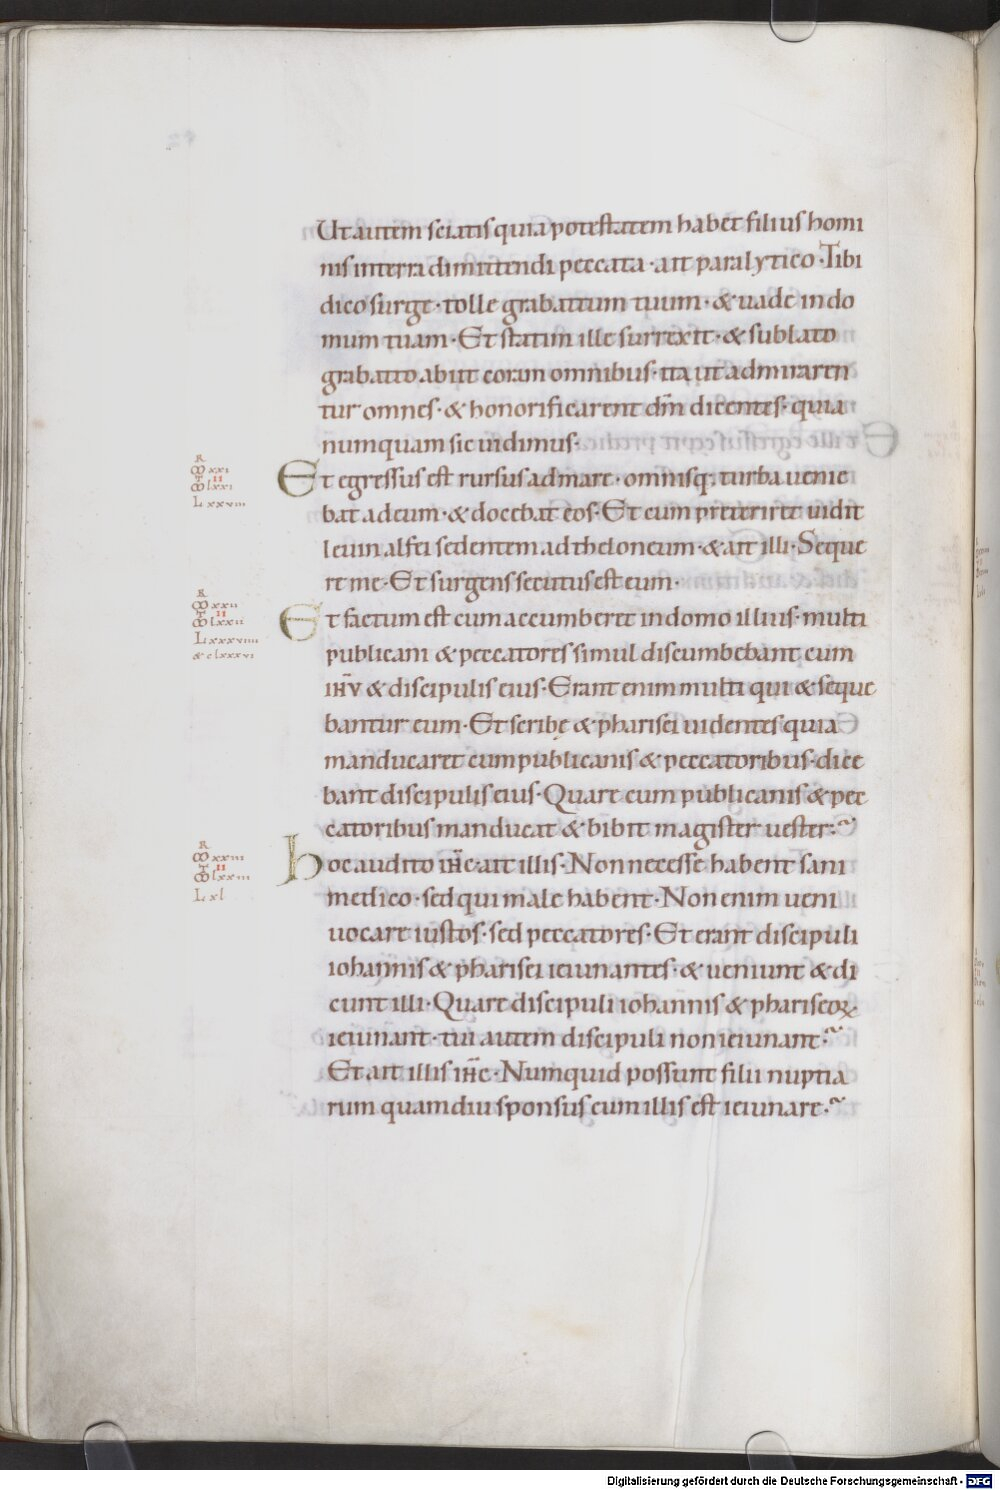 Ut autem sciatis quia potestatem habet filius homi
nis in terra dimittendi peccata · ait paralytico · Tibi
dico surge · tolle grabattum tuum · & uade in do
mum tuam · Et statim ille surrexit · & sublato
grabatto abiit coram omnibus · ita ut admiraren
tur omnes · & honorificarent dm̄ dicentes · quia
numquam sic uidimus ·
R
M xxi
T II
M lxxi
L xxviii
Et egressus est rursus ad mare · omnisq; turba uenie
bat ad eum · & docebat eos · Et cum preteriret uidit
leuin alfei sedentem ad theloneum · & ait illi · Seque
re me · Et surgens secutus est eum ·
R
M xxii
T II
M lxxii
L xxxviiii
& clxxxvi
Et factum est cum accumberet in domo illius · multi
publicani & peccatores simul discumbebant cum
ihū & discipulis eius · Erant enim multi qui & seque
bantur eum · Et scribę & pharisei uidentes quia
manducaret cum publicanis & peccatoribus · dice
bant discipulis eius · Quare cum publicanis & pec
catoribus manducat & bibit magister uester ·~
R
M xxiii
T II
M lxxiii
L xl
hoc audito ihc̄ ait illis · Non necesse habent sani
medico · sed qui male habent · Non enim ueni
uocare iustos · sed peccatores · Et erant discipuli
iohannis & pharisei ieiunantes · & ueniunt & di
cunt illi · Quare discipuli iohannis & phariseoꝝ ·
ieiunant · tui autem discipuli non ieiunant ·~
Et ait illis ihc̄ · Numquid possunt filii nuptia
rum quamdiu sponsus cum illis est ieiunare ·~
Digitalisierung gefördert durch die Deutsche Forschungsgemeinschaft - DFG